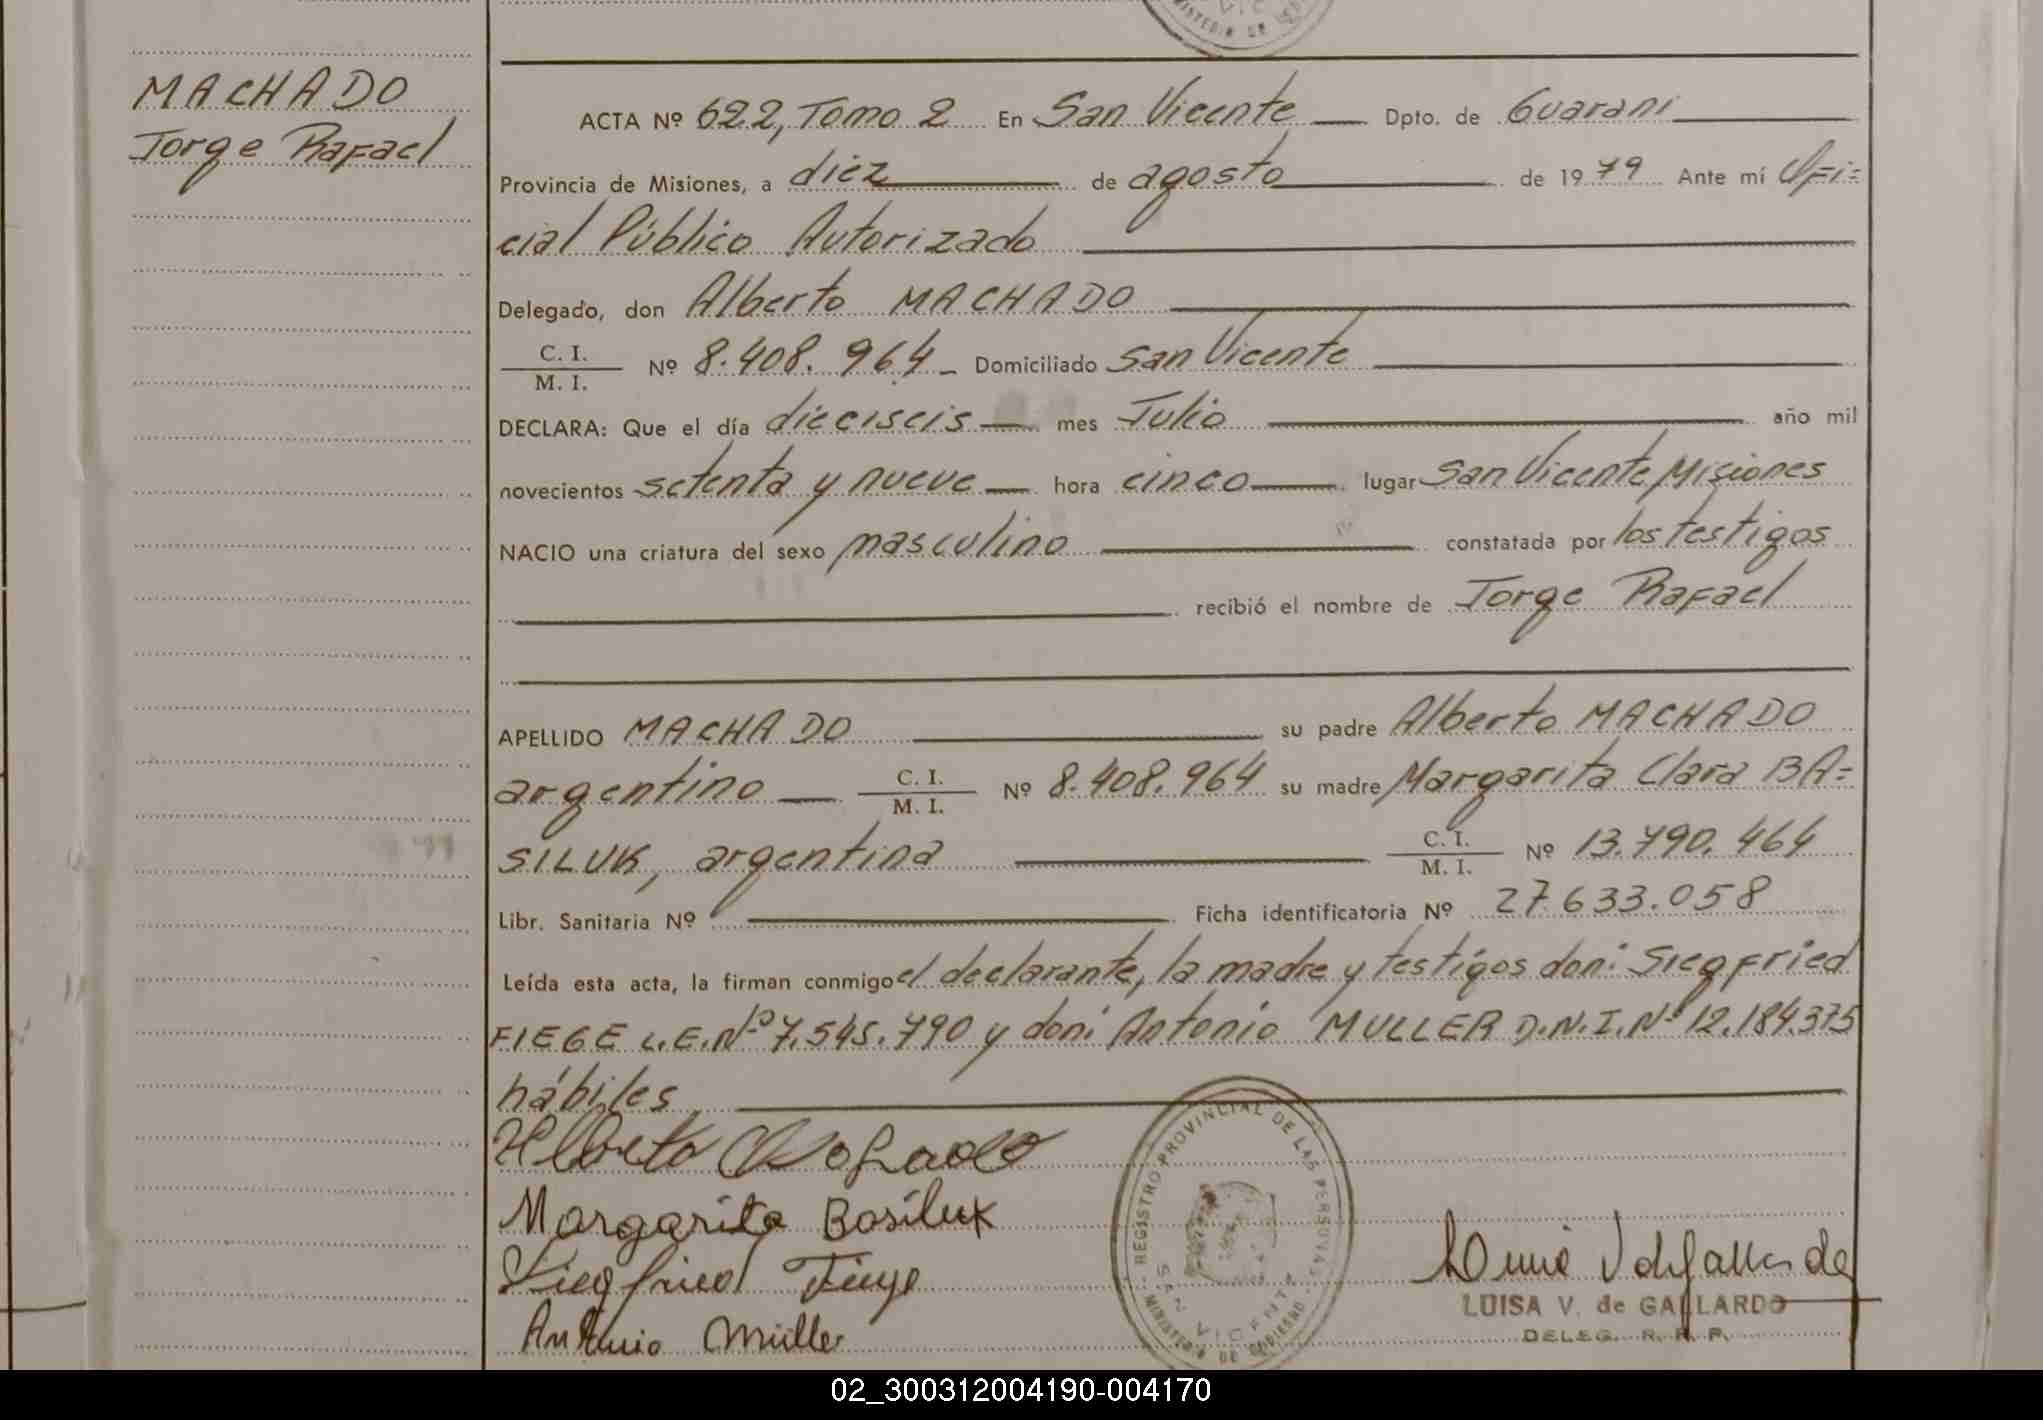 MACHADO
Jorge Rafael
ACTA Nº 622, Tomo 2 En San Vicente Dpto. de Guarani
Provincia de Misiones, a diez de agosto de 1979 Ante mí Ofi=
cial Público Autorizado
Delegado, don Alberto MACHADO
C. I.
M. I. Nº 8.408.964 Domiciliado San Vicente
DECLARA: Que el día dieciseis mes Julio año mil
novecientos setenta y nueve hora cinco lugar San Vicente, Misiones
NACIO una criatura del sexo masculino constatada por los testigos
recibió el nombre de Jorge Rafael
APELLIDO MACHADO su padre Alberto MACHADO
argentino C. I. M. I. Nº 8.408.964 su madre Margarita Clara BA=
SILUK, argentina C. I. M. I. Nº 13.790.464
Libr. Sanitaria Nº Ficha identificatoria Nº 27.633.058
Leída esta acta, la firman conmigo el declarante, la madre y testigos don: Siegfried
FIEGE L.E. Nº 7.545.790 y don: Antonio MULLER D.N.I. Nº 12.184.375
hábiles
Alberto Machado
Margarita Basiluk
Siegfried Fiege
Antonio Müller
REGISTRO PROVINCIAL DE LAS PERSONAS
SAN VICENTE
MINISTERIO DE GOBIERNO
LUISA V. de GALLARDO
DELEG. R. P. P.
02_300312004190-004170